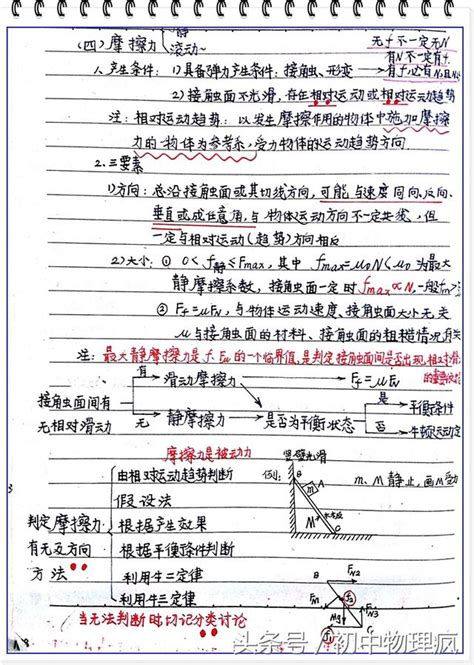 (四)摩擦力 滚动~
无f不一定无N
有N不一定有f
1、产生条件：1)具备弹力产生条件：接触、形变 有f必有N
2)接触面不光滑，存在相对运动或相对运动趋势
注：相对运动趋势：以发生摩擦作用的物体中施加摩擦
力的物体为参考系，受力物体的运动趋势方向.
2、三要素
1)方向：总沿接触面或其切线方向，可能与速度同向、反向、
垂直或成任意角，与物体运动方向不一定共线，但
一定与相对运动(趋势)方向相反
2)大小：① 0<f静≤Fmax，其中 fmax=μ0N(μ0为最大
静摩擦系数，接触面一定时fmax∝N，一般
② Ff=μFN，与物体运动速度、接触面大小无关
μ与接触面的材料、接触面的粗糙情况有关
注：最大静摩擦力是f、FN的一个临界值，是判定接触面间是否出现相对
接触面间有
无相对滑动
有 滑动摩擦力 Ff=μFN
无 静摩擦力 是否为平衡状态
是 平衡条件
否 牛顿运动定
摩擦力是被动力 竖壁光滑
判定摩擦力
有无及方向
方法
由相对运动趋势判断
假设法
根据产生效果
根据平衡条件判断
利用牛二定律
利用牛三定律
例: B m A M C
m、M静止，画M受力
B FN2
FN1 f2
Mg FN3
f1 C
当无法判断时切记分类讨论
头条号/初中物理疯